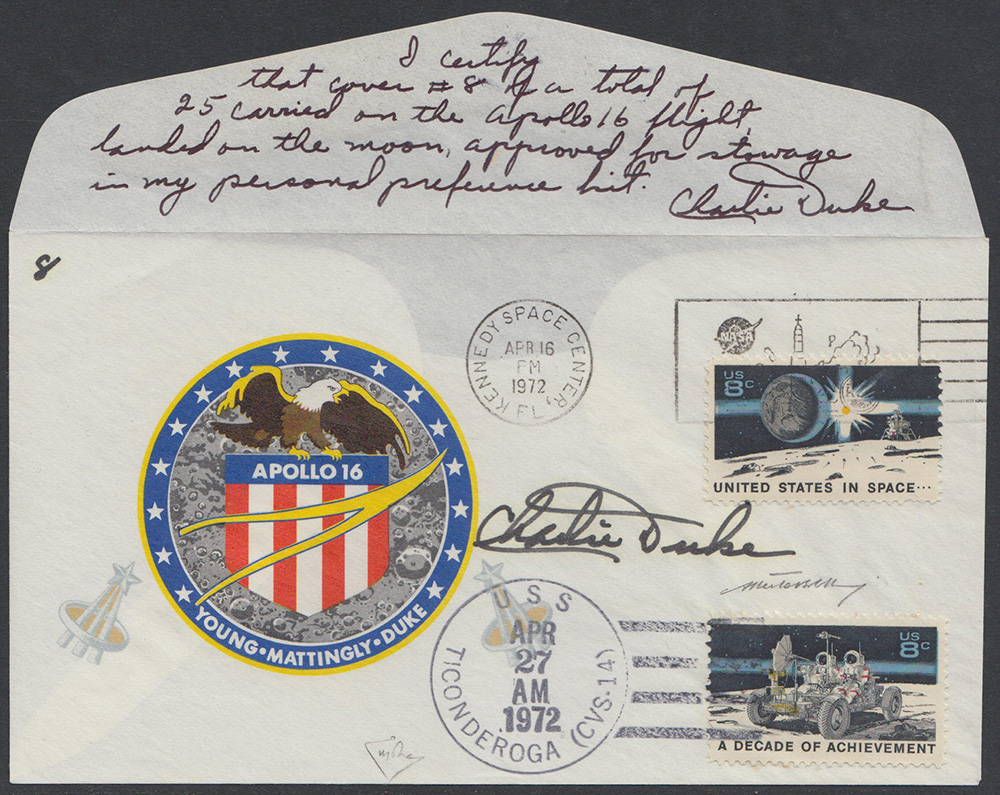 I certify
that cover #8 of a total of
25 carried on the Apollo 16 flight,
landed on the moon, approved for stowage
in my personal preference kit.
Charlie Duke
8
KENNEDY SPACE CENTER, FL.
APR 16
PM
1972
NASA
US
8c
UNITED STATES IN SPACE...
APOLLO 16
YOUNG•MATTINGLY•DUKE
Charlie Duke
USS TICONDEROGA (CVS-14)
APR
27
AM
1972
US
8c
A DECADE OF ACHIEVEMENT